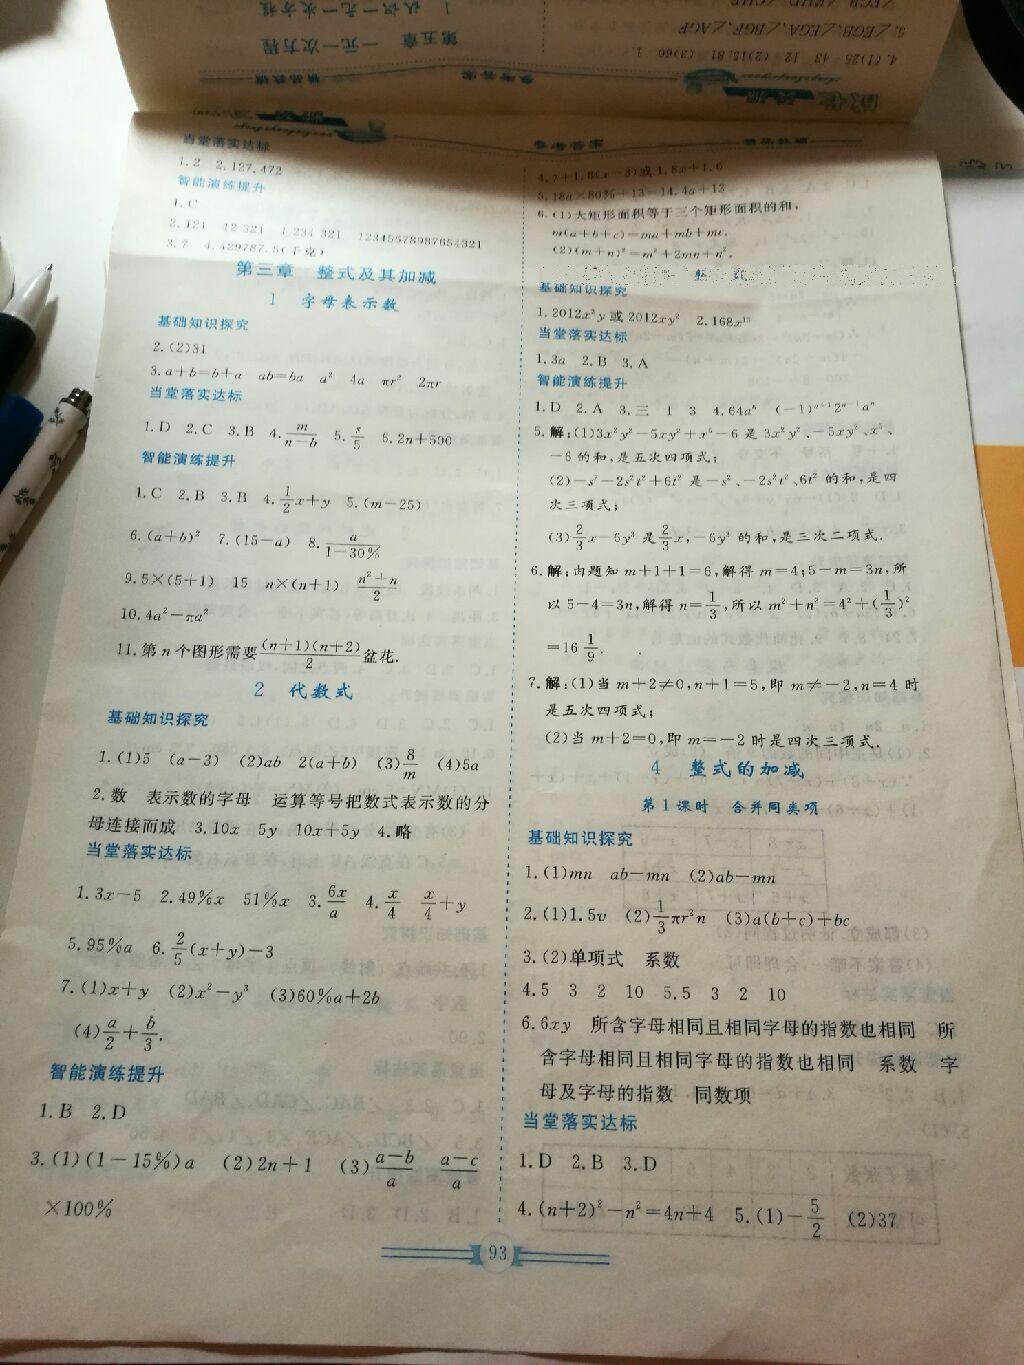 当堂落实达标
1.2 2.127,472
智能演练提升
1.C
2.121 12 321 1 234 321 12345678987654321
3.7 4.429787.5(千克)
第三章 整式及其加减
1 字母表示数
基础知识探究
2.(2)31
3.a+b=b+a ab=ba a² 4a πr² 2πr
当堂落实达标
1.D 2.C 3.B 4.m/(n-b) 5.s/5 6.2n+500
智能演练提升
1.C 2.B 3.B 4.1/2x+y 5.(m-25)
6.(a+b)² 7.(15-a) 8.a/(1-30%)
9.5×(5+1) 15 n×(n+1) (n²+n)/2
10.4a²-πa²
11.第n个图形需要(n+1)(n+2)/2盆花.
2 代数式
基础知识探究
1.(1)5 (a-3) (2)ab 2(a+b) (3)8/m (4)5a
2.数 表示数的字母 运算等号把数式表示数的分
母连接而成 3.10x 5y 10x+5y 4.略
当堂落实达标
1.3x-5 2.49%x 51%x 3.6x/a 4.x/4 x/4+y
5.95%a 6.2/5(x+y)-3
7.(1)x+y (2)x²-y³ (3)60%a+2b
(4)a/2+b/3.
智能演练提升
1.B 2.D
3.(1)(1-15%)a (2)2n+1 (3)(a-b)/a (a-c)/a
×100%
参考答案
4.7+1.8(x-3)或1.8x+1.6
5.18a×80%+13=14.4a+13
6.(1)大矩形面积等于三个矩形面积的和,
m(a+b+c)=ma+mb+mc.
(2)(m+n)²=m²+2mn+n².
整 式
基础知识探究
1.2012x²y或2012xy² 2.168x¹⁵
当堂落实达标
1.3a 2.B 3.A
智能演练提升
1.D 2.A 3.三 1 3 4.64a⁶ (-1)ⁿ⁺¹2ⁿ⁻¹aⁿ
5.解:(1)3x²y²-5xy²+x⁵-6是3x²y²、-5xy²、x⁵、
-6的和,是五次四项式;
(2)-s²-2s²t²+6t²是-s²、-2s²t²、6t²的和,是四
次三项式;
(3)2/3x-6y³是2/3x,-6y³的和,是三次二项式.
6.解:由题知m+1+1=6,解得m=4;5-m=3n,所
以5-4=3n,解得n=1/3,所以m²+n²=4²+(1/3)²
=16 1/9.
7.解:(1)当m+2≠0,n+1=5,即m≠-2,n=4时
是五次四项式;
(2)当m+2=0,即m=-2时是四次三项式.
4 整式的加减
第1课时 合并同类项
基础知识探究
1.(1)mn ab-mn (2)ab-mn
2.(1)1.5v (2)1/3πr²n (3)a(b+c)+bc
3.(2)单项式 系数
4.5 3 2 10 5.5 3 2 10
6.6xy 所含字母相同且相同字母的指数也相同 所
含字母相同且相同字母的指数也相同 系数 字
母及字母的指数 同数项
当堂落实达标
1.D 2.B 3.D
4.(n+2)²-n²=4n+4 5.(1)-5/2 (2)37
93